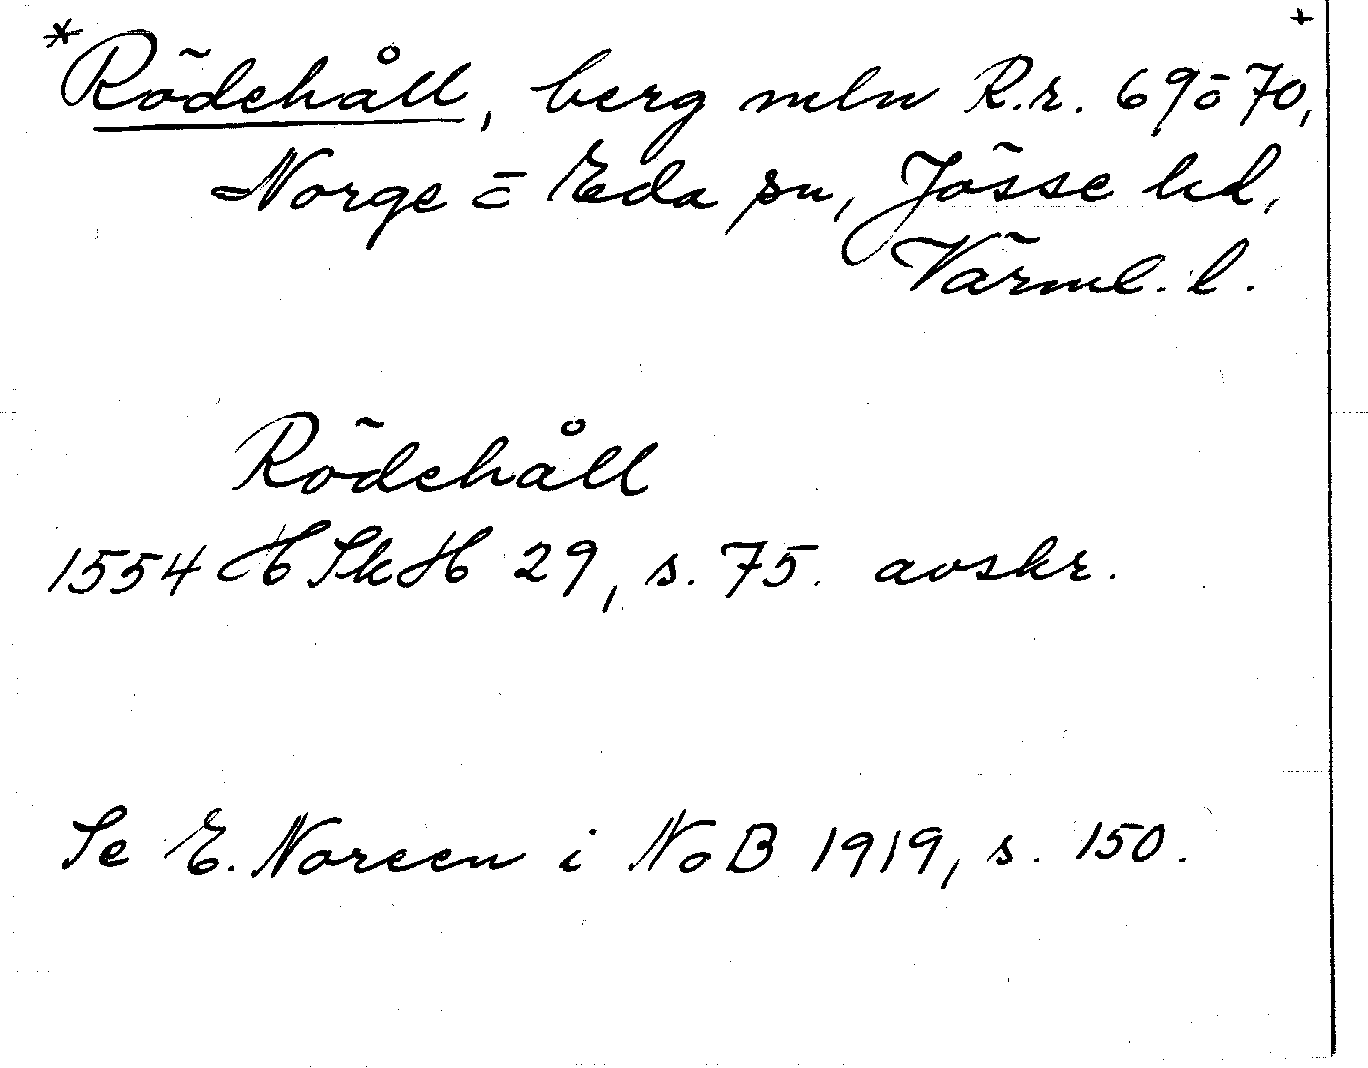 *Rödehåll, berg mln R.r. 69 o 70, +
Norge o Eda sn, Jösse hd,
Värml. l.
Rödehåll
1554 HSkH 29, s. 75. avskr.
Se E. Noreen i NoB 1919, s. 150.